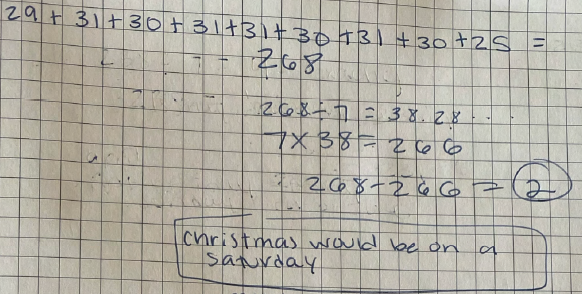 29 + 31 + 30 + 31 + 31 + 30 + 31 + 30 + 25 =
268
268 ÷ 7 = 38.28...
7 × 38 = 266
268 - 266 = 2
christmas would be on a
saturday